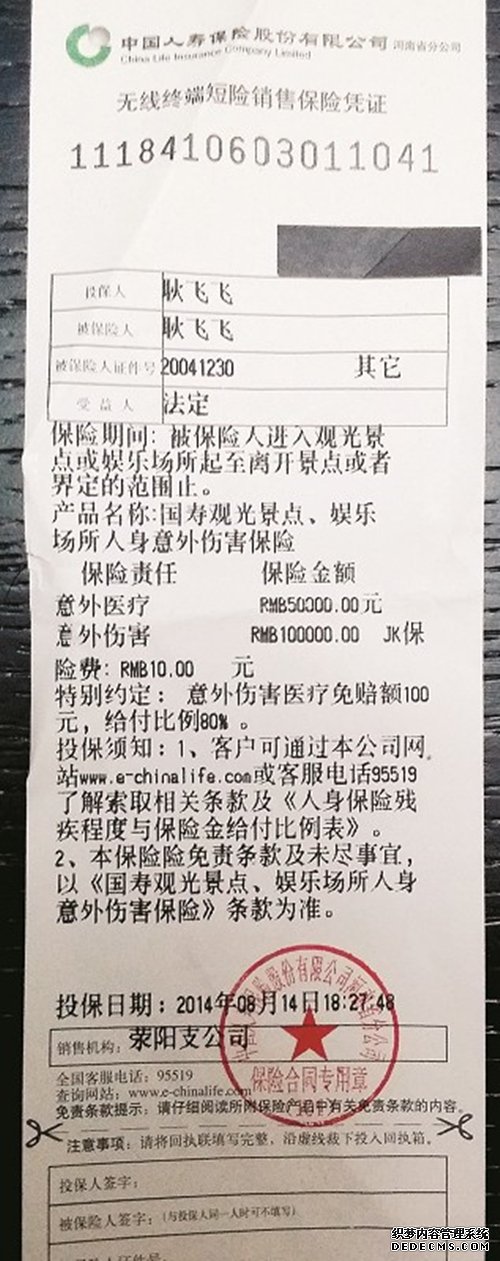 中国人寿保险股份有限公司 河南省分公司
China Life Insurance Company Limited
无线终端短险销售保险凭证
1118410603011041
投保人 耿飞飞
被保险人 耿飞飞
被保险人证件号 20041230 其它
受益人 法定
保险期间: 被保险人进入观光景
点或娱乐场所起至离开景点或者
界定的范围止。
产品名称:国寿观光景点、娱乐
场所人身意外伤害保险
保险责任 保险金额
意外医疗 RMB50000.00元
意外伤害 RMB100000.00 JK保
险费: RMB10.00 元
特别约定： 意外伤害医疗免赔额100
元，给付比例80% 。
投保须知：1、客户可通过本公司网
站www.e-chinalife.com或客服电话95519
了解索取相关条款及《人身保险残
疾程度与保险金给付比例表》。
2、本保险险免责条款及未尽事宜，
以《国寿观光景点、娱乐场所人身
意外伤害保险》条款为准。
投保日期：2014年08月14日18:27:48
销售机构: 荥阳支公司
保险合同专用章
全国客服电话：95519
查询网站：www.e-chinalife.com
免责条款提示：请仔细阅读所附保险产品中有关免责条款的内容。
注意事项：请将回执联填写完整，沿虚线裁下投入回执箱。
投保人签字：
被保险人签字：(与投保人同一人时可不填写)
织梦内容管理系统
DEDECMS.COM